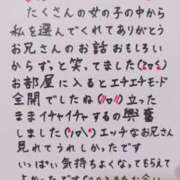 たくさんの女の子の中から
私を選んでくれてありがとう
お兄さんのお話おもしろい
からずっと笑ってました(ﾉﾛ〃)
お部屋に入るとエチエチモード
全開でしたね(ﾉﾛ〃)立った
ままイチャイチャするの興奮
しました(ﾉﾛ〃)エッチなお兄さん
見れてうれしかったです
いっぱい気持ちよくなってもらえて